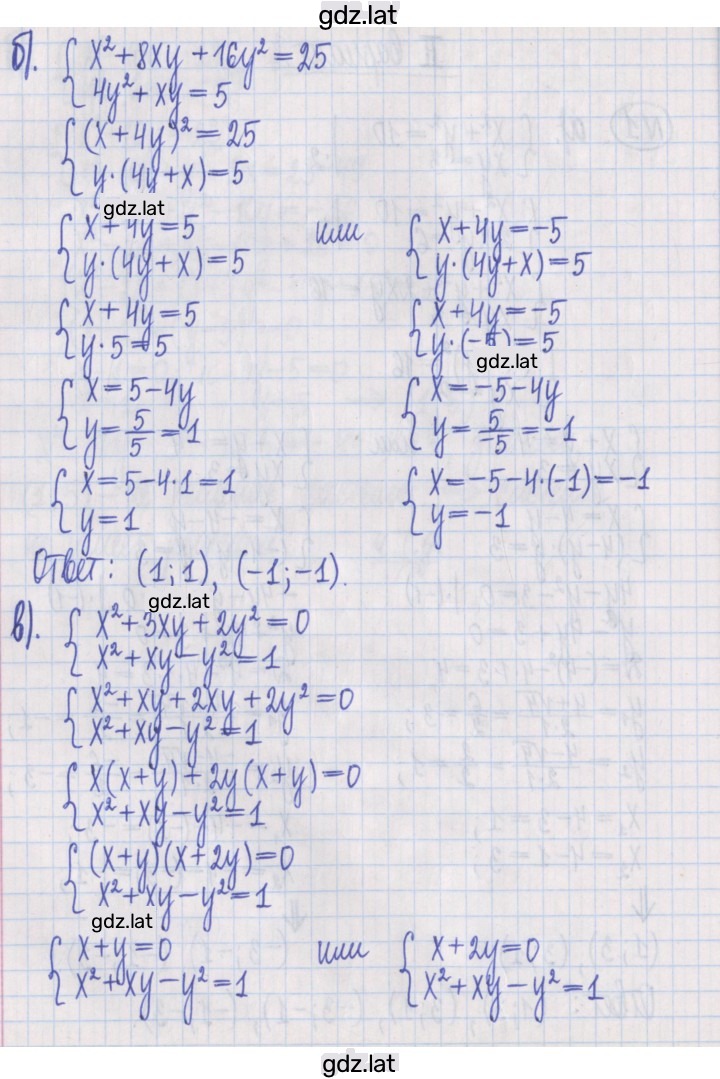 gdz.lat
б). { x² + 8xy + 16y² = 25
{ 4y² + xy = 5
{ (x + 4y)² = 25
{ y·(4y + x) = 5
gdz.lat
{ x + 4y = 5 или { x + 4y = -5
{ y·(4y + x) = 5 { y·(4y + x) = 5
{ x + 4y = 5 { x + 4y = -5
{ y·5 = 5 { y·(-5) = 5
gdz.lat
{ x = 5 - 4y { x = -5 - 4y
{ y = 5/5 = 1 { y = 5/-5 = -1
{ x = 5 - 4·1 = 1 { x = -5 - 4·(-1) = -1
{ y = 1 { y = -1
Ответ: (1; 1), (-1; -1).
gdz.lat
в). { x² + 3xy + 2y² = 0
{ x² + xy - y² = 1
{ x² + xy + 2xy + 2y² = 0
{ x² + xy - y² = 1
{ x(x + y) + 2y(x + y) = 0
{ x² + xy - y² = 1
{ (x + y)(x + 2y) = 0
{ x² + xy - y² = 1
gdz.lat
{ x + y = 0 или { x + 2y = 0
{ x² + xy - y² = 1 { x² + xy - y² = 1
gdz.lat